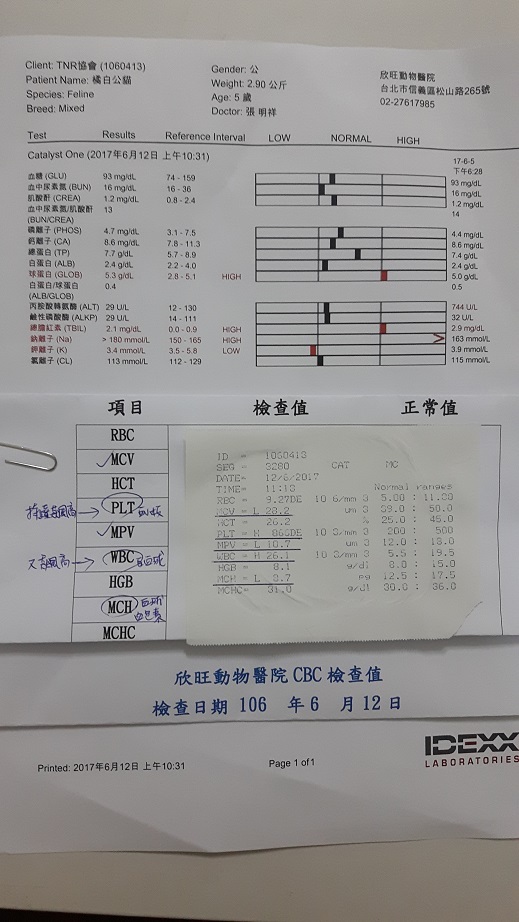 Client: TNR協會 (1060413)
Patient Name: 橘白公貓
Species: Feline
Breed: Mixed
Gender: 公
Weight: 2.90 公斤
Age: 5 歲
Doctor: 張 明祥
欣旺動物醫院
台北市信義區松山路265號
02-27617985
Test Results Reference Interval LOW NORMAL HIGH
Catalyst One (2017年6月12日 上午10:31) 17-6-5
下午6:28
血糖 (GLU) 93 mg/dL 74 - 159 93 mg/dL
血中尿素氮 (BUN) 16 mg/dL 16 - 36 16 mg/dL
肌酸酐 (CREA) 1.2 mg/dL 0.8 - 2.4 1.2 mg/dL
血中尿素氮/肌酸酐 13 14
(BUN/CREA)
磷離子 (PHOS) 4.7 mg/dL 3.1 - 7.5 4.4 mg/dL
鈣離子 (CA) 8.6 mg/dL 7.8 - 11.3 8.6 mg/dL
總蛋白 (TP) 7.7 g/dL 5.7 - 8.9 7.4 g/dL
白蛋白 (ALB) 2.4 g/dL 2.2 - 4.0 2.4 g/dL
球蛋白 (GLOB) 5.3 g/dL 2.8 - 5.1 HIGH 5.0 g/dL
白蛋白/球蛋白 0.4 0.5
(ALB/GLOB)
丙胺酸轉氨酶 (ALT) 29 U/L 12 - 130 744 U/L
鹼性磷酸酶 (ALKP) 29 U/L 14 - 111 32 U/L
總膽紅素 (TBIL) 2.1 mg/dL 0.0 - 0.9 HIGH 2.9 mg/dL
鈉離子 (Na) > 180 mmol/L 150 - 165 HIGH 163 mmol/L
鉀離子 (K) 3.4 mmol/L 3.5 - 5.8 LOW 3.9 mmol/L
氯離子 (CL) 113 mmol/L 112 - 129 115 mmol/L
項目 檢查值 正常值
RBC
✓MCV
HCT
持續飆高 → PLT
✓MPV
又飆高 → WBC 白血球
HGB
MCH 血色素
MCHC
ID = 1060413
SEG = 3280 CAT MC
DATE= 12/6/2017
TIME= 11:13 Normal ranges
RBC = 9.27DE 10 6/mm 3 5.00 : 11.00
MCV = L 28.2 um 3 39.0 : 50.0
HCT = 26.2 % 25.0 : 45.0
PLT = H 866DE 10 3/mm 3 200 : 500
MPV = L 10.7 um 3 12.0 : 18.0
WBC = H 26.1 10 3/mm 3 5.5 : 19.5
HGB = 8.1 g/dl 8.0 : 15.0
MCH = L 8.7 pg 12.5 : 17.5
MCHC= 31.0 g/dl 30.0 : 36.0
欣旺動物醫院 CBC 檢查值
檢查日期 106 年 6 月 12 日
IDEXX
LABORATORIES
Printed: 2017年6月12日 上午10:31 Page 1 of1